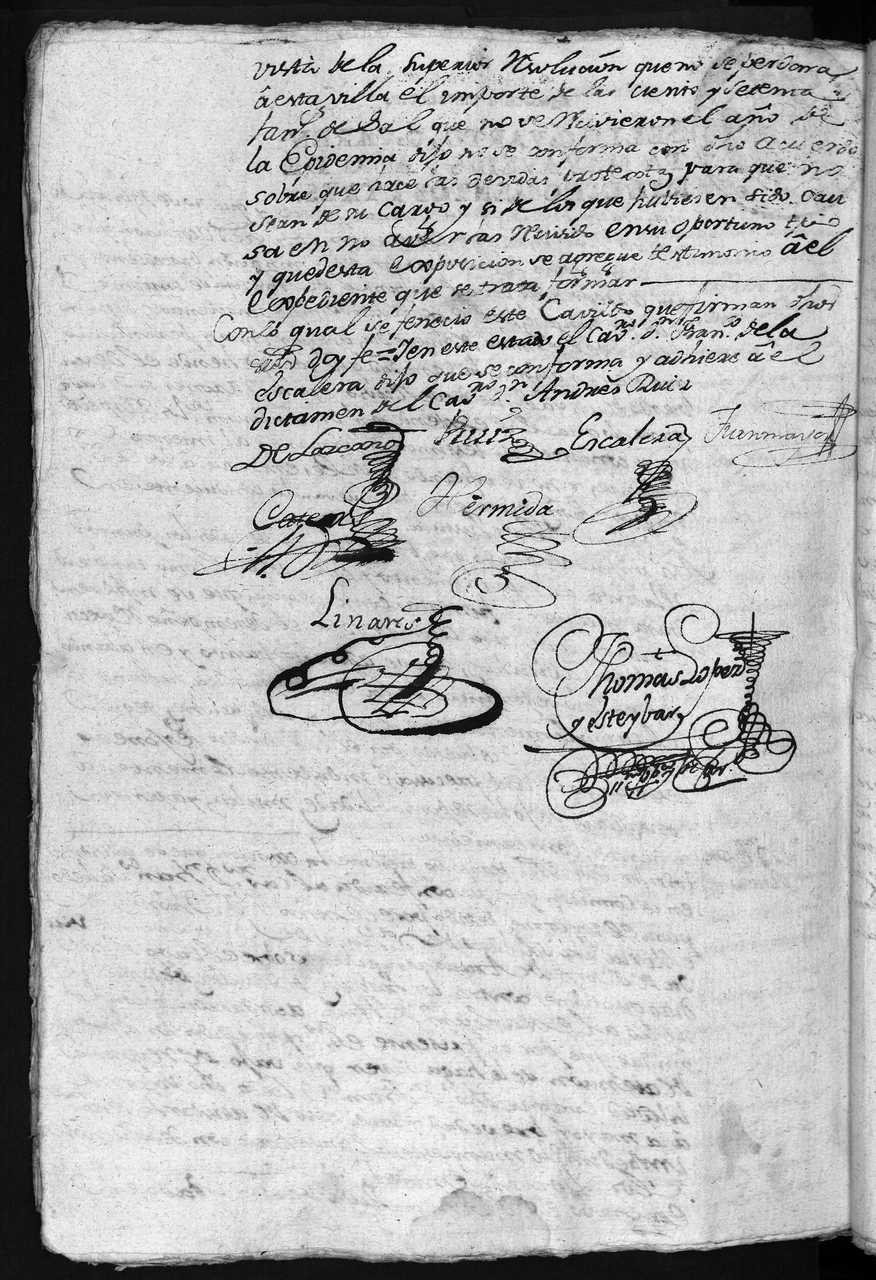 vista de la Superior Resolucion que no se perdona
â esta villa el importe de las ciento y setenta
fan.s de Sal que no se recivieron el año de
la Epidemia dijo no se conforma con dho Acuerdo
sobre que hace las devidas protextas para que no
sean de su Cargo y si de los que hubiesen sido cau
sa en no averlas recivido en su oportuno tpo
y que desta Exposicion se agregue testimonio âel
Expediente que se trata formar
Con lo qual se fenecio este Cavildo que firman
doy fe = Y en este estado el Cav.ro d.n Fran.co de la
escalera dijo que se conforma y adhiere â el
dictamen del Cav.ro d.n Andres Ruiz
De Lazcano Ruiz Escalera Fuenmayor
Hermida
Linares
Thomas Lopez
y esteybar